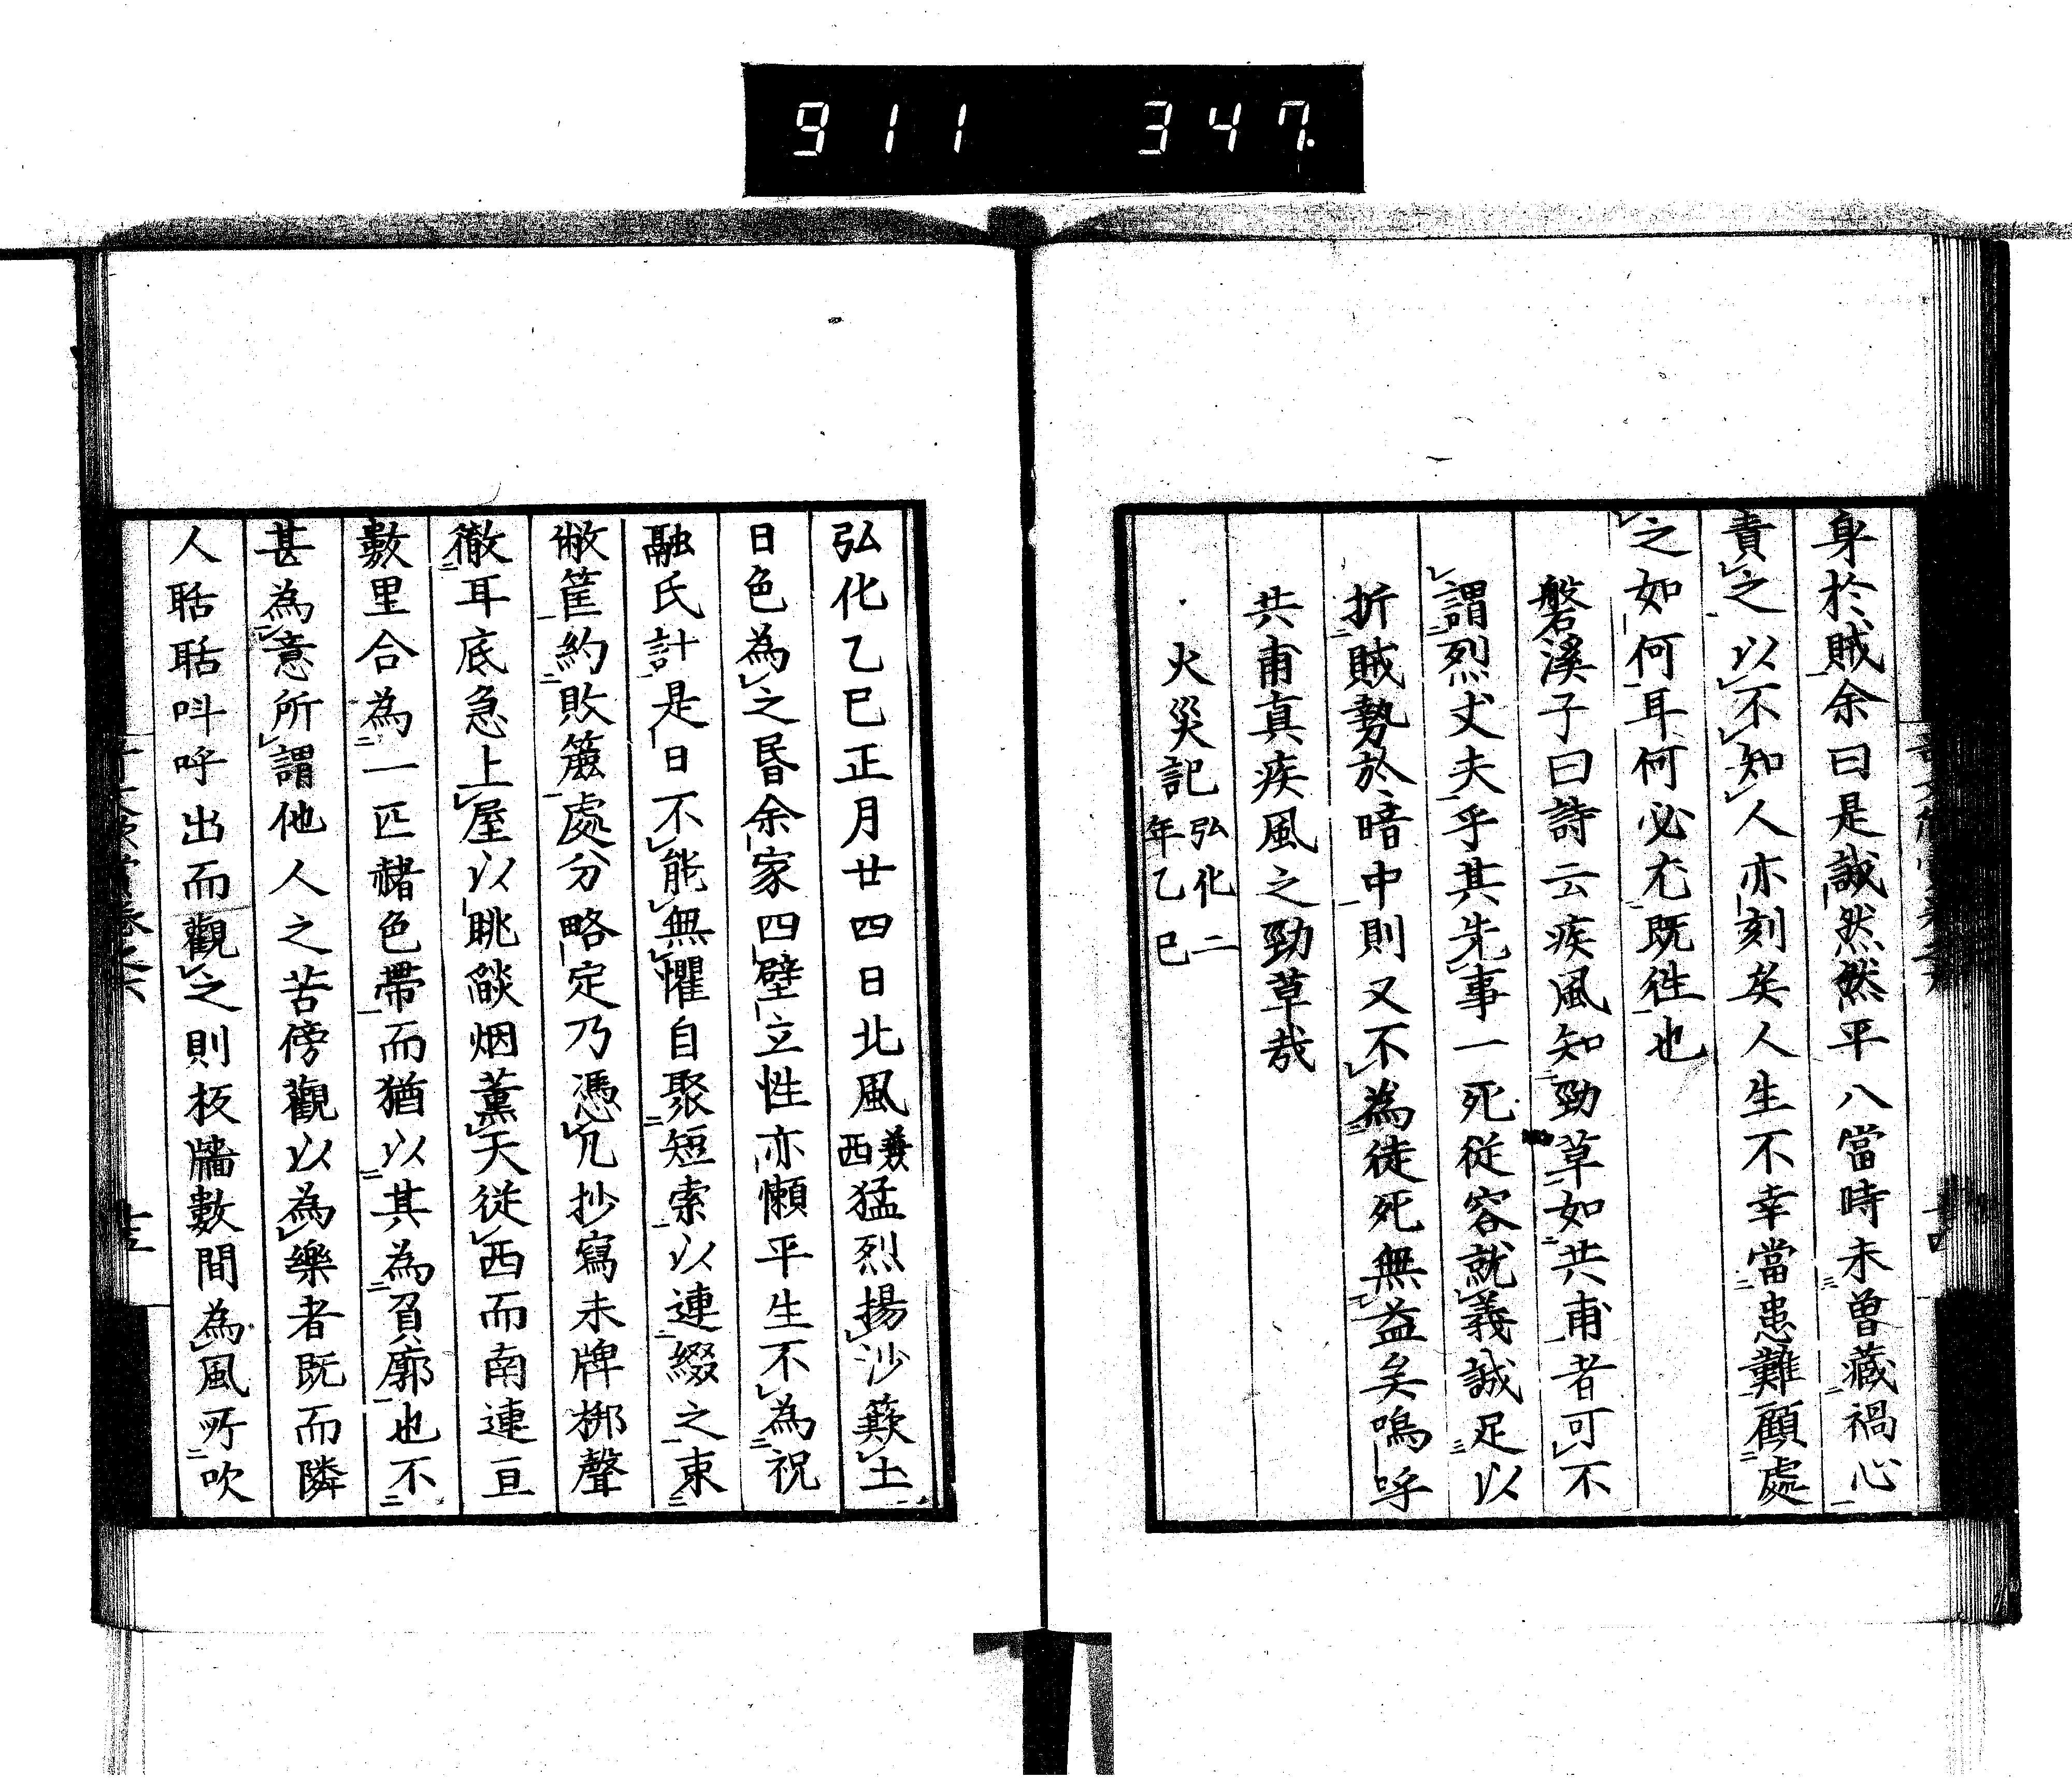 911 347.
身於賊余曰是誠然然平八當時未曾藏禍心
責之以不知人亦刻矣人生不幸當患難顧處
之如何耳何必尤既徃也
磐溪子曰詩云疾風知勁草如共甫者可不
謂烈丈夫乎其先事一死從容就義誠足以
折賊勢於暗中則又不為徒死無益矣嗚呼
共甫真疾風之勁草哉
火災記弘化二年乙巳
弘化乙巳正月廿四日北風兼西猛烈揚沙簸土
日色為之昏余家四壁立性亦懶平生不為祝
融氏計是日不能無懼自聚短索以連綴之東
敝筐約敗簏處分略定乃憑几抄寫未牌梆聲
徹耳底急上屋以眺燄烟薫天從西而南連亘
數里合為一匹赭色帶而猶以其為負廓也不
甚為意所謂他人之苦傍觀以為樂者既而隣
人聒聒呌呼出而觀之則板牆數間為風所吹